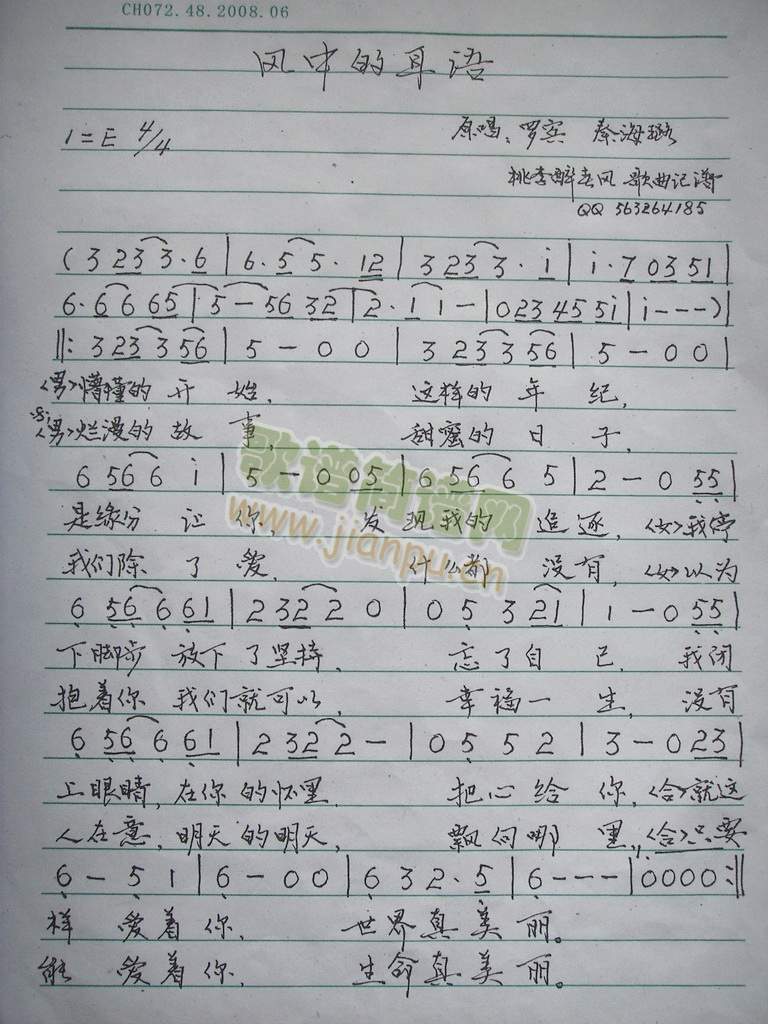 CH072.48.2008.06
风中的耳语
1=E 4/4 原唱:罗宾 秦海璐
桃李醉春风 歌曲记谱
QQ 563264185
(3 23 3·6 | 6·5 5·12 | 3 23 3·i | i·7 0351 |
6·6 6 65 | 5 - 56 32 | 2·1 1 - | 023 45 5i | i - - -)
‖: 3 23 3 56 | 5 - 0 0 | 3 23 3 56 | 5 - 0 0 |
<男>懵懂的开始, 这样的年纪,
<男>烂漫的故事, 甜蜜的日子,
6 56 6 i | 5 - 0 05 | 6 56 6 5 | 2 - 0 55 |
是缘份让你, 发现我的追逐, <女>我停
我们除了爱, 什么都没有, <女>以为
6 56 6 61 | 2 32 2 0 | 0 5 3 21 | 1 - 0 55 |
下脚步 放下了坚持, 忘了自己, 我闭
抱着你 我们就可以, 幸福一生, 没有
6 56 6 61 | 2 32 2 - | 0 5 5 2 | 3 - 0 23 |
上眼睛,在你的怀里, 把心给你,<合>就这
人在意,明天的明天, 飘向哪里,<合>只要
6 - 5 1 | 6 - 0 0 | 6 3 2·5 | 6 - - - | 0 0 0 0 :‖
样 爱着你, 世界真美丽。
能 爱着你, 生命真美丽。
歌谱简谱网
www.jianpu.cn